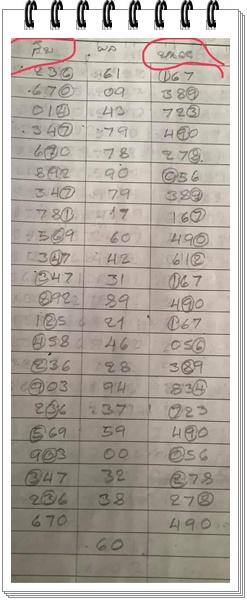 สิบ ผล หน่วย
236 61 167
670 09 389
012 43 723
347 79 490
670 78 278
892 90 056
347 79 389
781 17 167
569 60 490
347 42 612
347 31 167
892 89 490
125 21 167
458 46 056
236 28 389
903 94 834
236 37 723
569 59 490
903 00 056
347 32 278
236 38 278
670 490
60